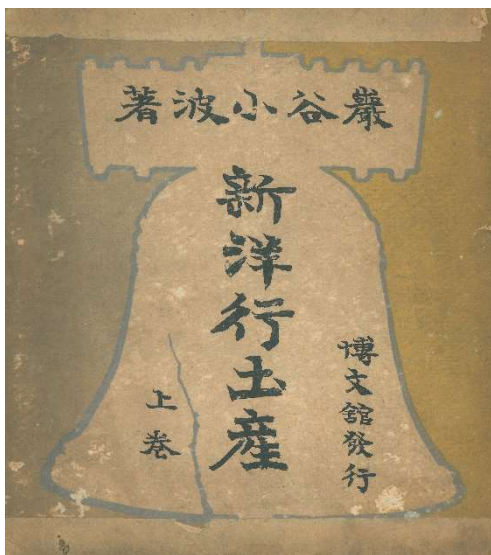 巖谷小波著
新洋行土産
博文館發行
上巻